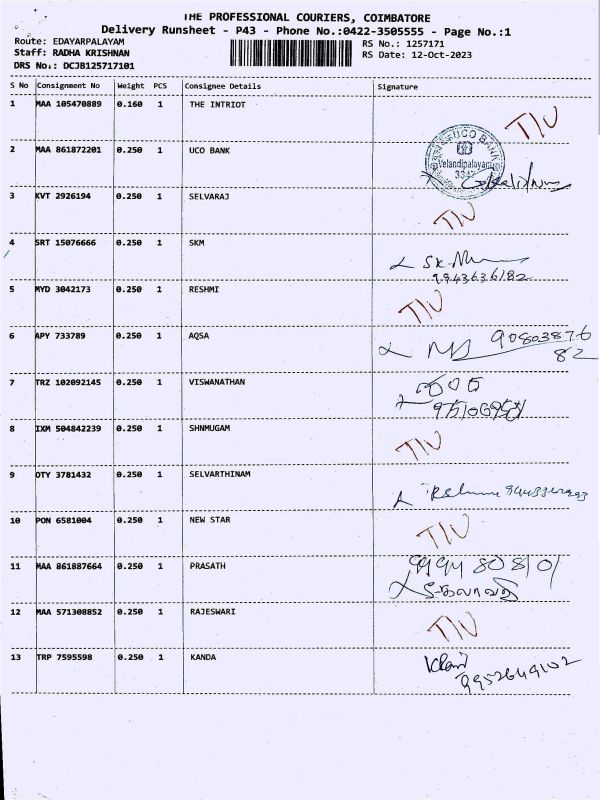 THE PROFESSIONAL COURIERS, COIMBATORE
Delivery Runsheet - P43 - Phone No.:0422-3505555 - Page No.:1
Route: EDAYARPALAYAM
Staff: RADHA KRISHNAN
DRS No.: DCJB125717101
RS No.: 1257171
RS Date: 12-Oct-2023
S No Consignment No Weight PCS Consignee Details Signature
1 MAA 105470889 0.160 1 THE INTRIOT
2 MAA 861872201 0.250 1 UCO BANK
UCO BANK
Velandipalayam
3 KVT 2926194 0.250 1 SELVARAJ
4 SRT 15076666 0.250 1 SKM
9943636182
5 MYD 3042173 0.250 1 RESHMI
6 APY 733789 0.250 1 AQSA
90803876
82
7 TRZ 102092145 0.250 1 VISWANATHAN
8 IXM 504842239 0.250 1 SHNMUGAM
9 OTY 3781432 0.250 1 SELVARTHINAM
10 PON 6581004 0.250 1 NEW STAR
11 MAA 861887664 0.250 1 PRASATH
9994 80810/
12 MAA 571308852 0.250 1 RAJESWARI
13 TRP 7595598 0.250 1 KANDA
9952649102